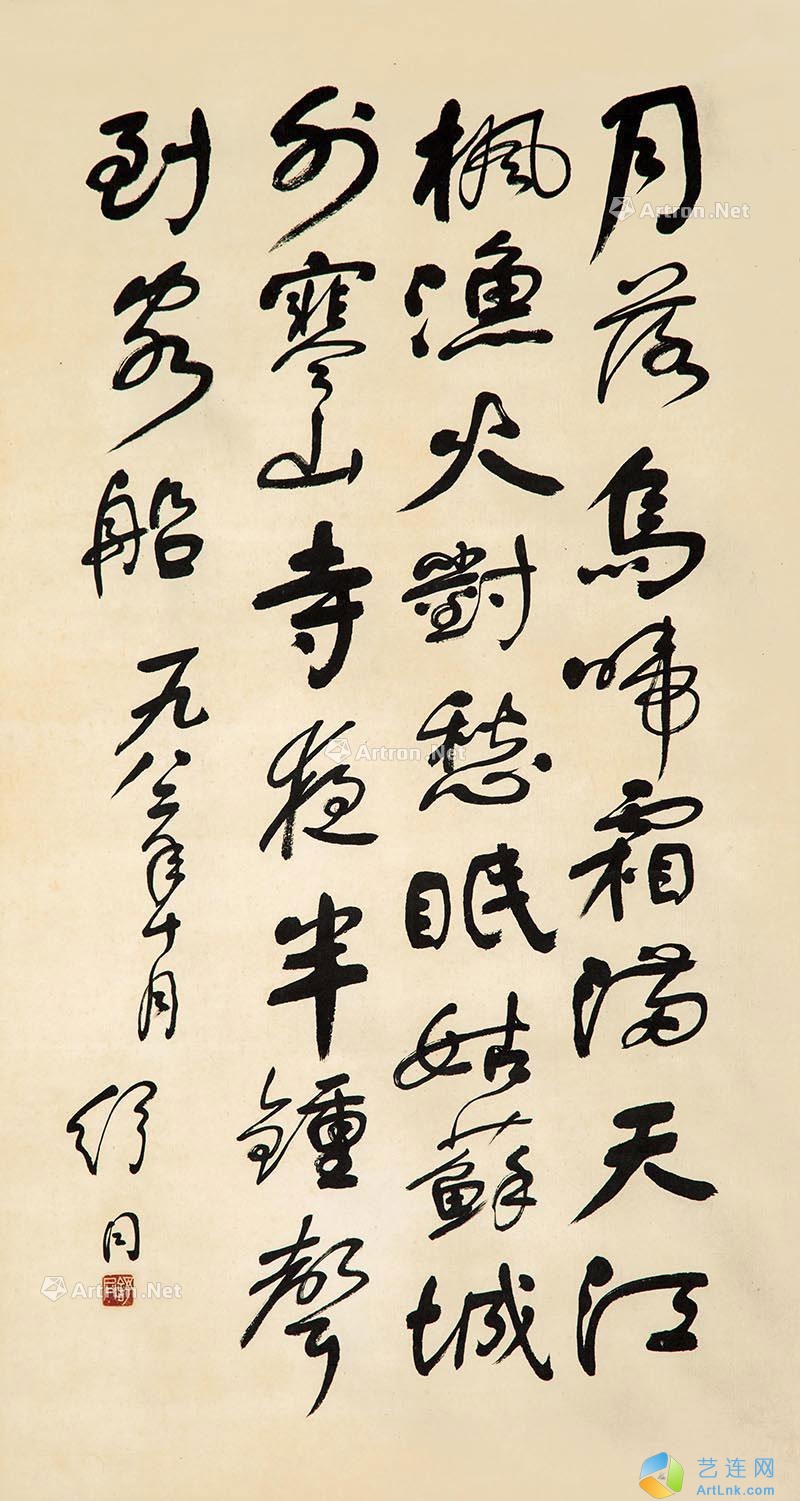 月落烏啼霜滿天江
楓漁火對愁眠姑蘇城
外寒山寺夜半鍾聲
到客船 一九八三年十月 舒同
Artron.Net
Artron.Net
Artron.Net
艺连网
ArtLnk.com